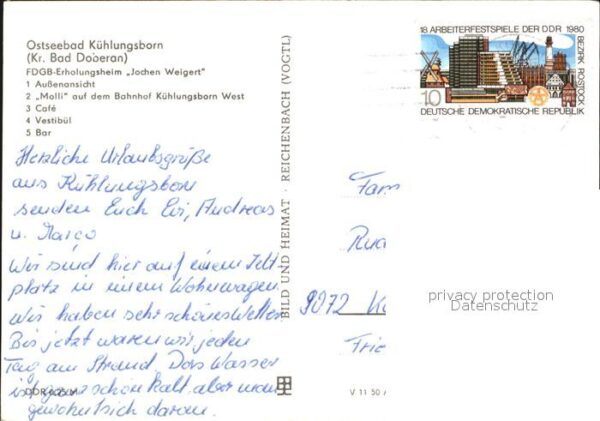 Ostseebad Kühlungsborn
(Kr. Bad Doberan)
FDGB-Erholungsheim „Jochen Weigert"
1 Außenansicht
2 „Molli" auf dem Bahnhof Kühlungsborn West
3 Café
4 Vestibül
5 Bar
Herzliche Urlaubsgrüße
aus Kühlungsborn
senden Euch Evi, Andreas
u. Marco
Wir sind hier auf einem Zelt-
platz in einem Wohnwagen.
Wir haben sehr schönes Wetter
Bis jetzt waren wir jeden
Tag am Strand. Das Wasser
ist ganz schön kalt, aber man
gewöhnt sich daran.
DDR 0,25 M
BILD UND HEIMAT · REICHENBACH (VOGTL)
V 11 50
18. ARBEITERFESTSPIELE DER DDR 1980
BEZIRK ROSTOCK
10
DEUTSCHE DEMOKRATISCHE REPUBLIK
Fam
9072 K
privacy protection
Datenschutz
Frie